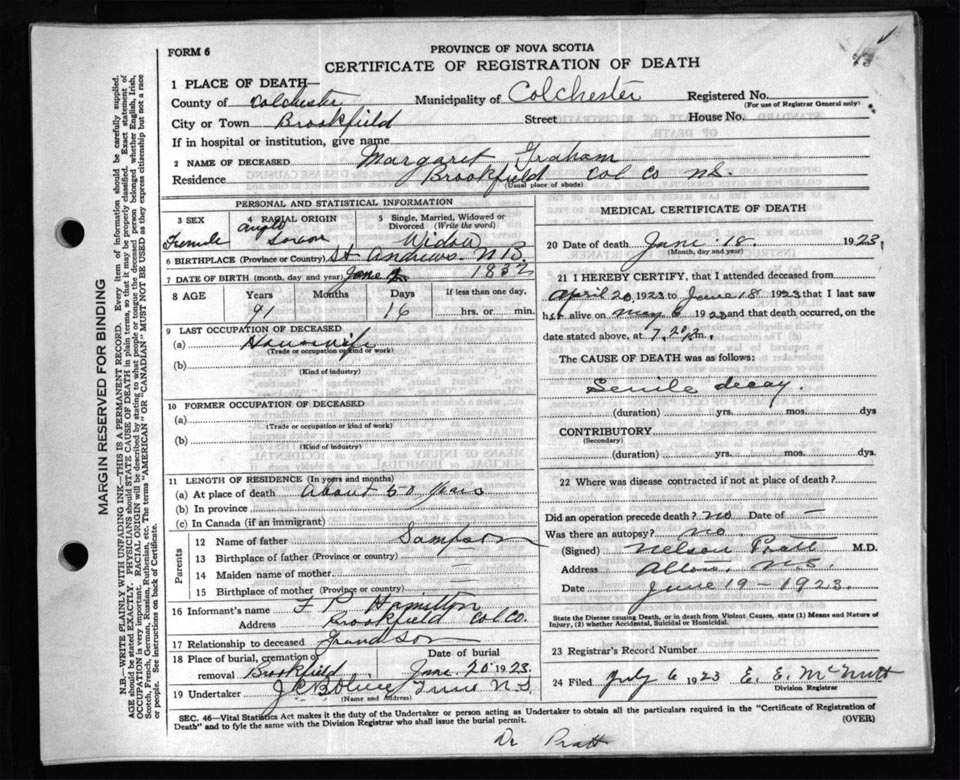 FORM 6
PROVINCE OF NOVA SCOTIA
CERTIFICATE OF REGISTRATION OF DEATH
1 PLACE OF DEATH—
County of Colchester Municipality of Colchester Registered No.
(For use of Registrar General only)
City or Town Brookfield Street House No.
If in hospital or institution, give name
2 NAME OF DECEASED Margaret Graham
Residence Brookfield Col Co N.S.
(Usual place of abode)
PERSONAL AND STATISTICAL INFORMATION
3 SEX Female
4 RACIAL ORIGIN Anglo Saxon
5 Single, Married, Widowed or Divorced (Write the word) Widow
6 BIRTHPLACE (Province or Country) St Andrews N.B.
7 DATE OF BIRTH (month, day and year) June 2 1832
8 AGE Years 91 Months Days 16 If less than one day, hrs. or min.
9 LAST OCCUPATION OF DECEASED
(a) Housewife
(Trade or occupation or kind of work)
(b)
(Kind of industry)
10 FORMER OCCUPATION OF DECEASED
(a)
(Trade or occupation or kind of work)
(b)
(Kind of industry)
11 LENGTH OF RESIDENCE (In years and months)
(a) At place of death About 50 years
(b) In province
(c) In Canada (if an immigrant)
Parents
12 Name of father Sampson
13 Birthplace of father (Province or country) —
14 Maiden name of mother —
15 Birthplace of mother (Province or country) —
16 Informant's name Hamilton
Address Brookfield Col Co.
17 Relationship to deceased Grandson
18 Place of burial, cremation or removal Brookfield Date of burial June 20 1923
19 Undertaker Truro N.S.
(Name and Address)
MEDICAL CERTIFICATE OF DEATH
20 Date of death June 18 1923.
(Month, day and year)
21 I HEREBY CERTIFY, that I attended deceased from
April 20, 1923 to June 18 1923 that I last saw
her alive on May 6 1923 and that death occurred, on the
date stated above, at m.
The CAUSE OF DEATH was as follows:
Senile decay.
(duration) yrs. mos. dys
CONTRIBUTORY
(Secondary)
(duration) yrs. mos. dys.
22 Where was disease contracted if not at place of death?
Did an operation precede death? no Date of —
Was there an autopsy? no
(Signed) Nelson Pratt M.D.
Address N.S.
Date June 19 - 1923.
State the Disease causing Death, or in death from Violent Causes, state (1) Means and Nature of Injury, (2) whether Accidental, Suicidal or Homicidal.
23 Registrar's Record Number
24 Filed July 6 1923 E. E. McNutt
Division Registrar
SEC. 46—Vital Statistics Act makes it the duty of the Undertaker or person acting as Undertaker to obtain all the particulars required in the "Certificate of Registration of
Death" and to fyle the same with the Division Registrar who shall issue the burial permit. (OVER)
Dr Pratt
MARGIN RESERVED FOR BINDING
N.B.—WRITE PLAINLY WITH UNFADING INK—THIS IS A PERMANENT RECORD. Every item of information should be carefully supplied.
AGE should be stated EXACTLY. PHYSICIANS should STATE CAUSE OF DEATH in plain terms, so that it may be properly classified. Exact statement of
OCCUPATION is very important. RACIAL ORIGIN will be described by stating to what people or tongue the deceased person belonged whether English, Irish,
Scotch, French, German, Russian, Ruthenian, etc. The terms "AMERICAN" OR "CANADIAN" MUST NOT BE USED as they express citizenship but not a race
or people. See instructions on back of Certificate.